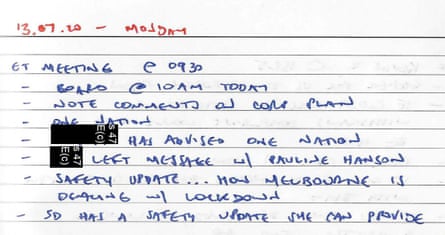 13.07.20 - MONDAY
ET MEETING @ 0930
- BOARD @ 10AM TODAY
- NOTE COMMENTS ON CORP PLAN
- ONE NATION
- s 47 E(c) HAS ADVISED ONE NATION
- s 47 E(c) LEFT MESSAGE w/ PAULINE HANSON
- SAFETY UPDATE... HOW MELBOURNE IS
DEALING w/ LOCKDOWN
- SD HAS A SAFETY UPDATE SHE CAN PROVIDE